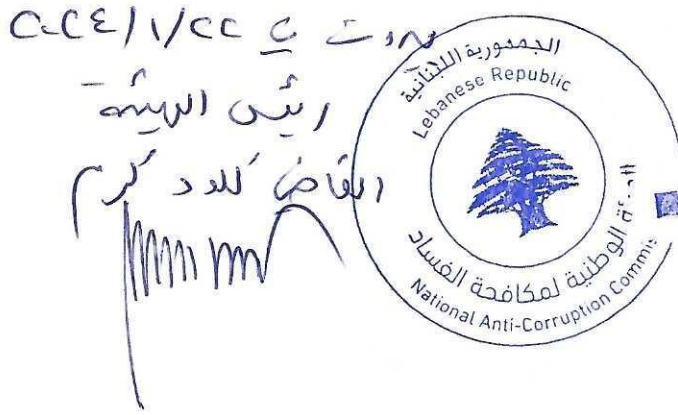 بيروت في ٢٠٢٤/١/٢٢
رئيس الهيئة
القاضي كلود كرم
الجمهورية اللبنانية
Lebanese Republic
الهيئة الوطنية لمكافحة الفساد
National Anti-Corruption Commis